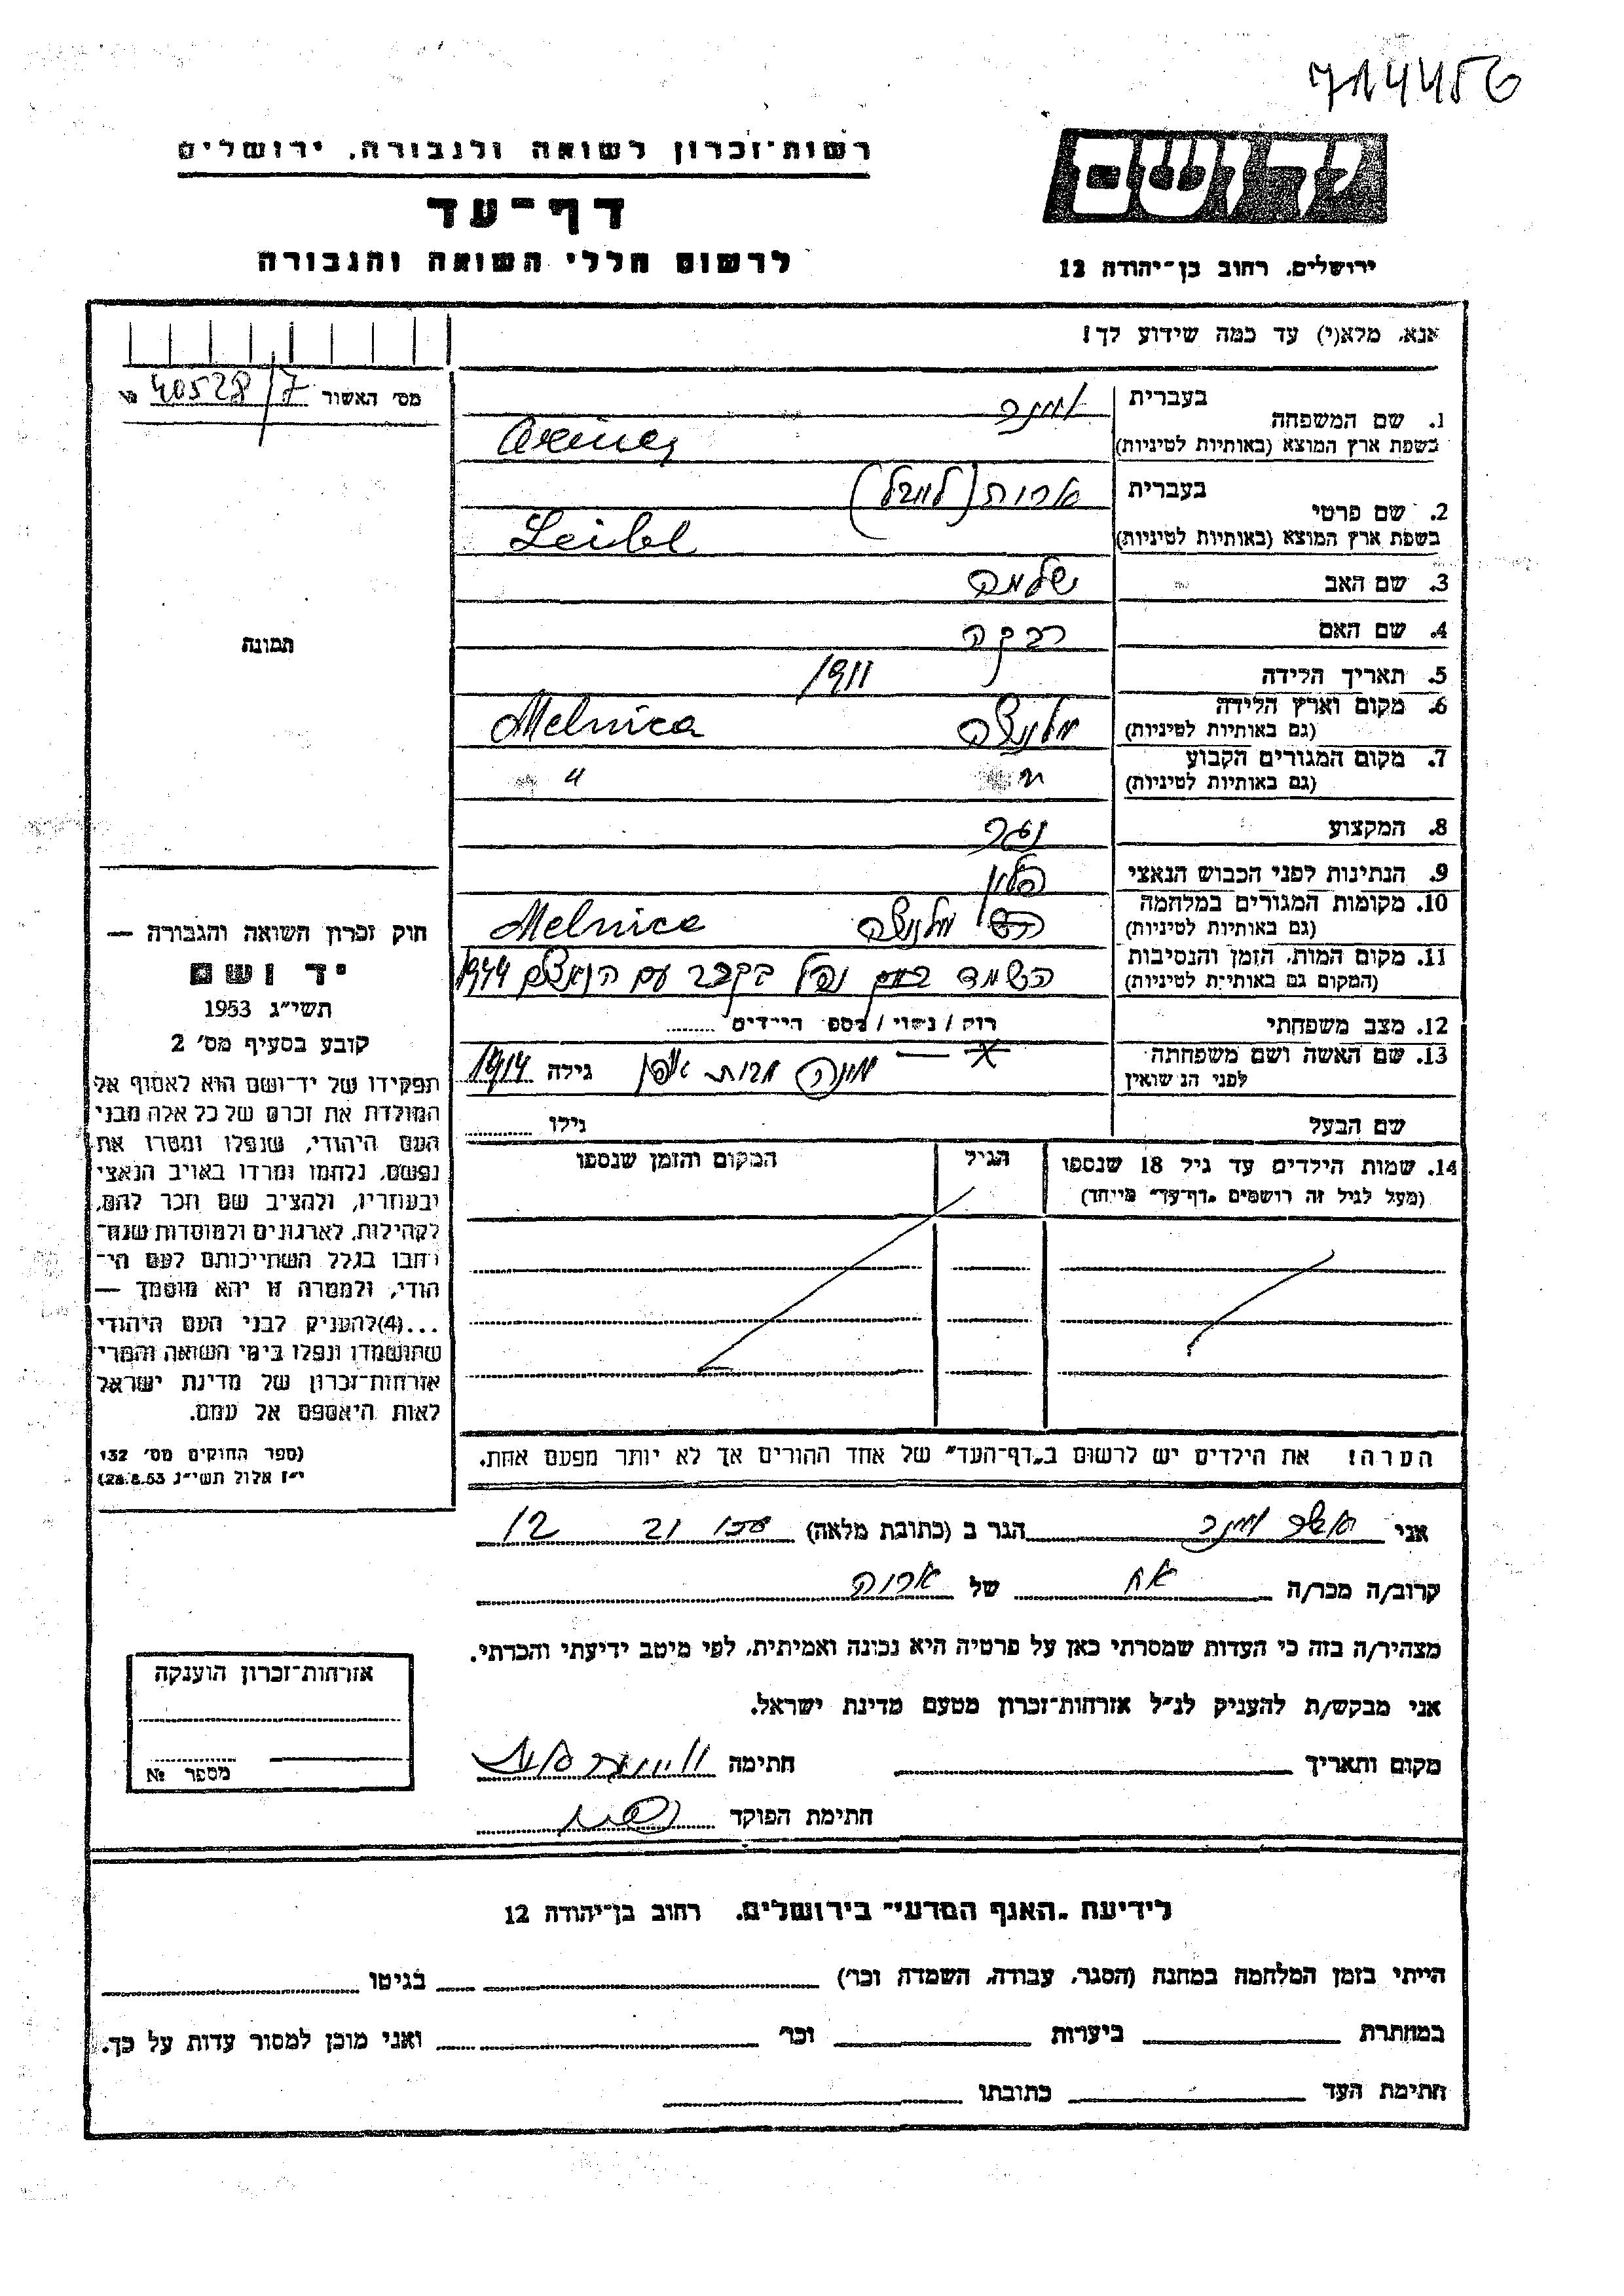 714456
רשות־זכרון לשואה ולגבורה, ירושלים
דף־עד
לרשום חללי השואה והגבורה
יד ושם
ירושלים, רחוב בן־יהודה 12
אנא, מלא(י) עד כמה שידוע לך!
מס׳ האשור 40528/7 №
תמונה
1. שם המשפחה
בעברית
בשפת ארץ המוצא (באותיות לטיניות)
2. שם פרטי
בעברית
בשפת ארץ המוצא (באותיות לטיניות) Leibel
3. שם האב שלמה
4. שם האם רבקה
5. תאריך הלידה 1911
6. מקום וארץ הלידה מלניצה Melnica
(גם באותיות לטיניות)
7. מקום המגורים הקבוע " "
(גם באותיות לטיניות)
8. המקצוע נגר
9. הנתינות לפני הכבוש הנאצי פולין
10. מקומות המגורים במלחמה מלניצה Melnica
(גם באותיות לטיניות)
11. מקום המות, הזמן והנסיבות נפל בקרב עם הנאצים 1944
(המקום גם באותיות לטיניות)
12. מצב משפחתי רוק / נשוי / מספר הילדים
13. שם האשה ושם משפחתה
לפני הנשואין
גילה 1914
שם הבעל גילו
14. שמות הילדים עד גיל 18 שנספו
(מעל לגיל זה רושמים „דף־עד״ מייחד)
הגיל
המקום והזמן שנספו
הערה! את הילדים יש לרשום ב„דף־העד״ של אחד ההורים אך לא יותר מפעם אחת.
חוק זכרון השואה והגבורה —
יד ושם
תשי״ג 1953
קובע בסעיף מס׳ 2
תפקידו של יד־ושם הוא לאסוף אל
המולדת את זכרם של כל אלה מבני
העם היהודי, שנפלו ומסרו את
נפשם, נלחמו ומרדו באויב הנאצי
ובעוזריו, ולהציב שם וזכר להם,
לקהילות, לארגונים ולמוסדות שנח־
רבו בגלל השתייכותם לעם הי־
הודי, ולמטרה זו יהא מוסמך —
...(4) להעניק לבני העם היהודי
שהושמדו ונפלו בימי השואה והמרי
אזרחות־זכרון של מדינת ישראל
לאות היאספם אל עמם.
(ספר החוקים מס׳ 132
י״ז אלול תשי״ג 28.8.53)
אני הגר ב (כתובת מלאה) 21 12
קרוב/ה מכר/ה אח של
מצהיר/ה בזה כי העדות שמסרתי כאן על פרטיה היא נכונה ואמיתית, לפי מיטב ידיעתי והכרתי.
אני מבקש/ת להעניק לנ״ל אזרחות־זכרון מטעם מדינת ישראל.
מקום ותאריך חתימה
חתימת הפוקד
אזרחות־זכרון הוענקה
מספר №
לידיעת „האגף המדעי״ בירושלים, רחוב בן־יהודה 12
הייתי בזמן המלחמה במחנה (הסגר, עבודה, השמדה וכו׳) בגיטו
במחתרת ביערות וכו׳ ואני מוכן למסור עדות על כך.
חתימת העד כתובתו